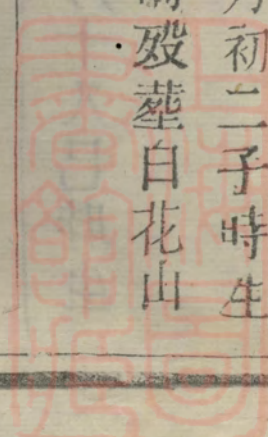 初二子時生
歿塟白花山